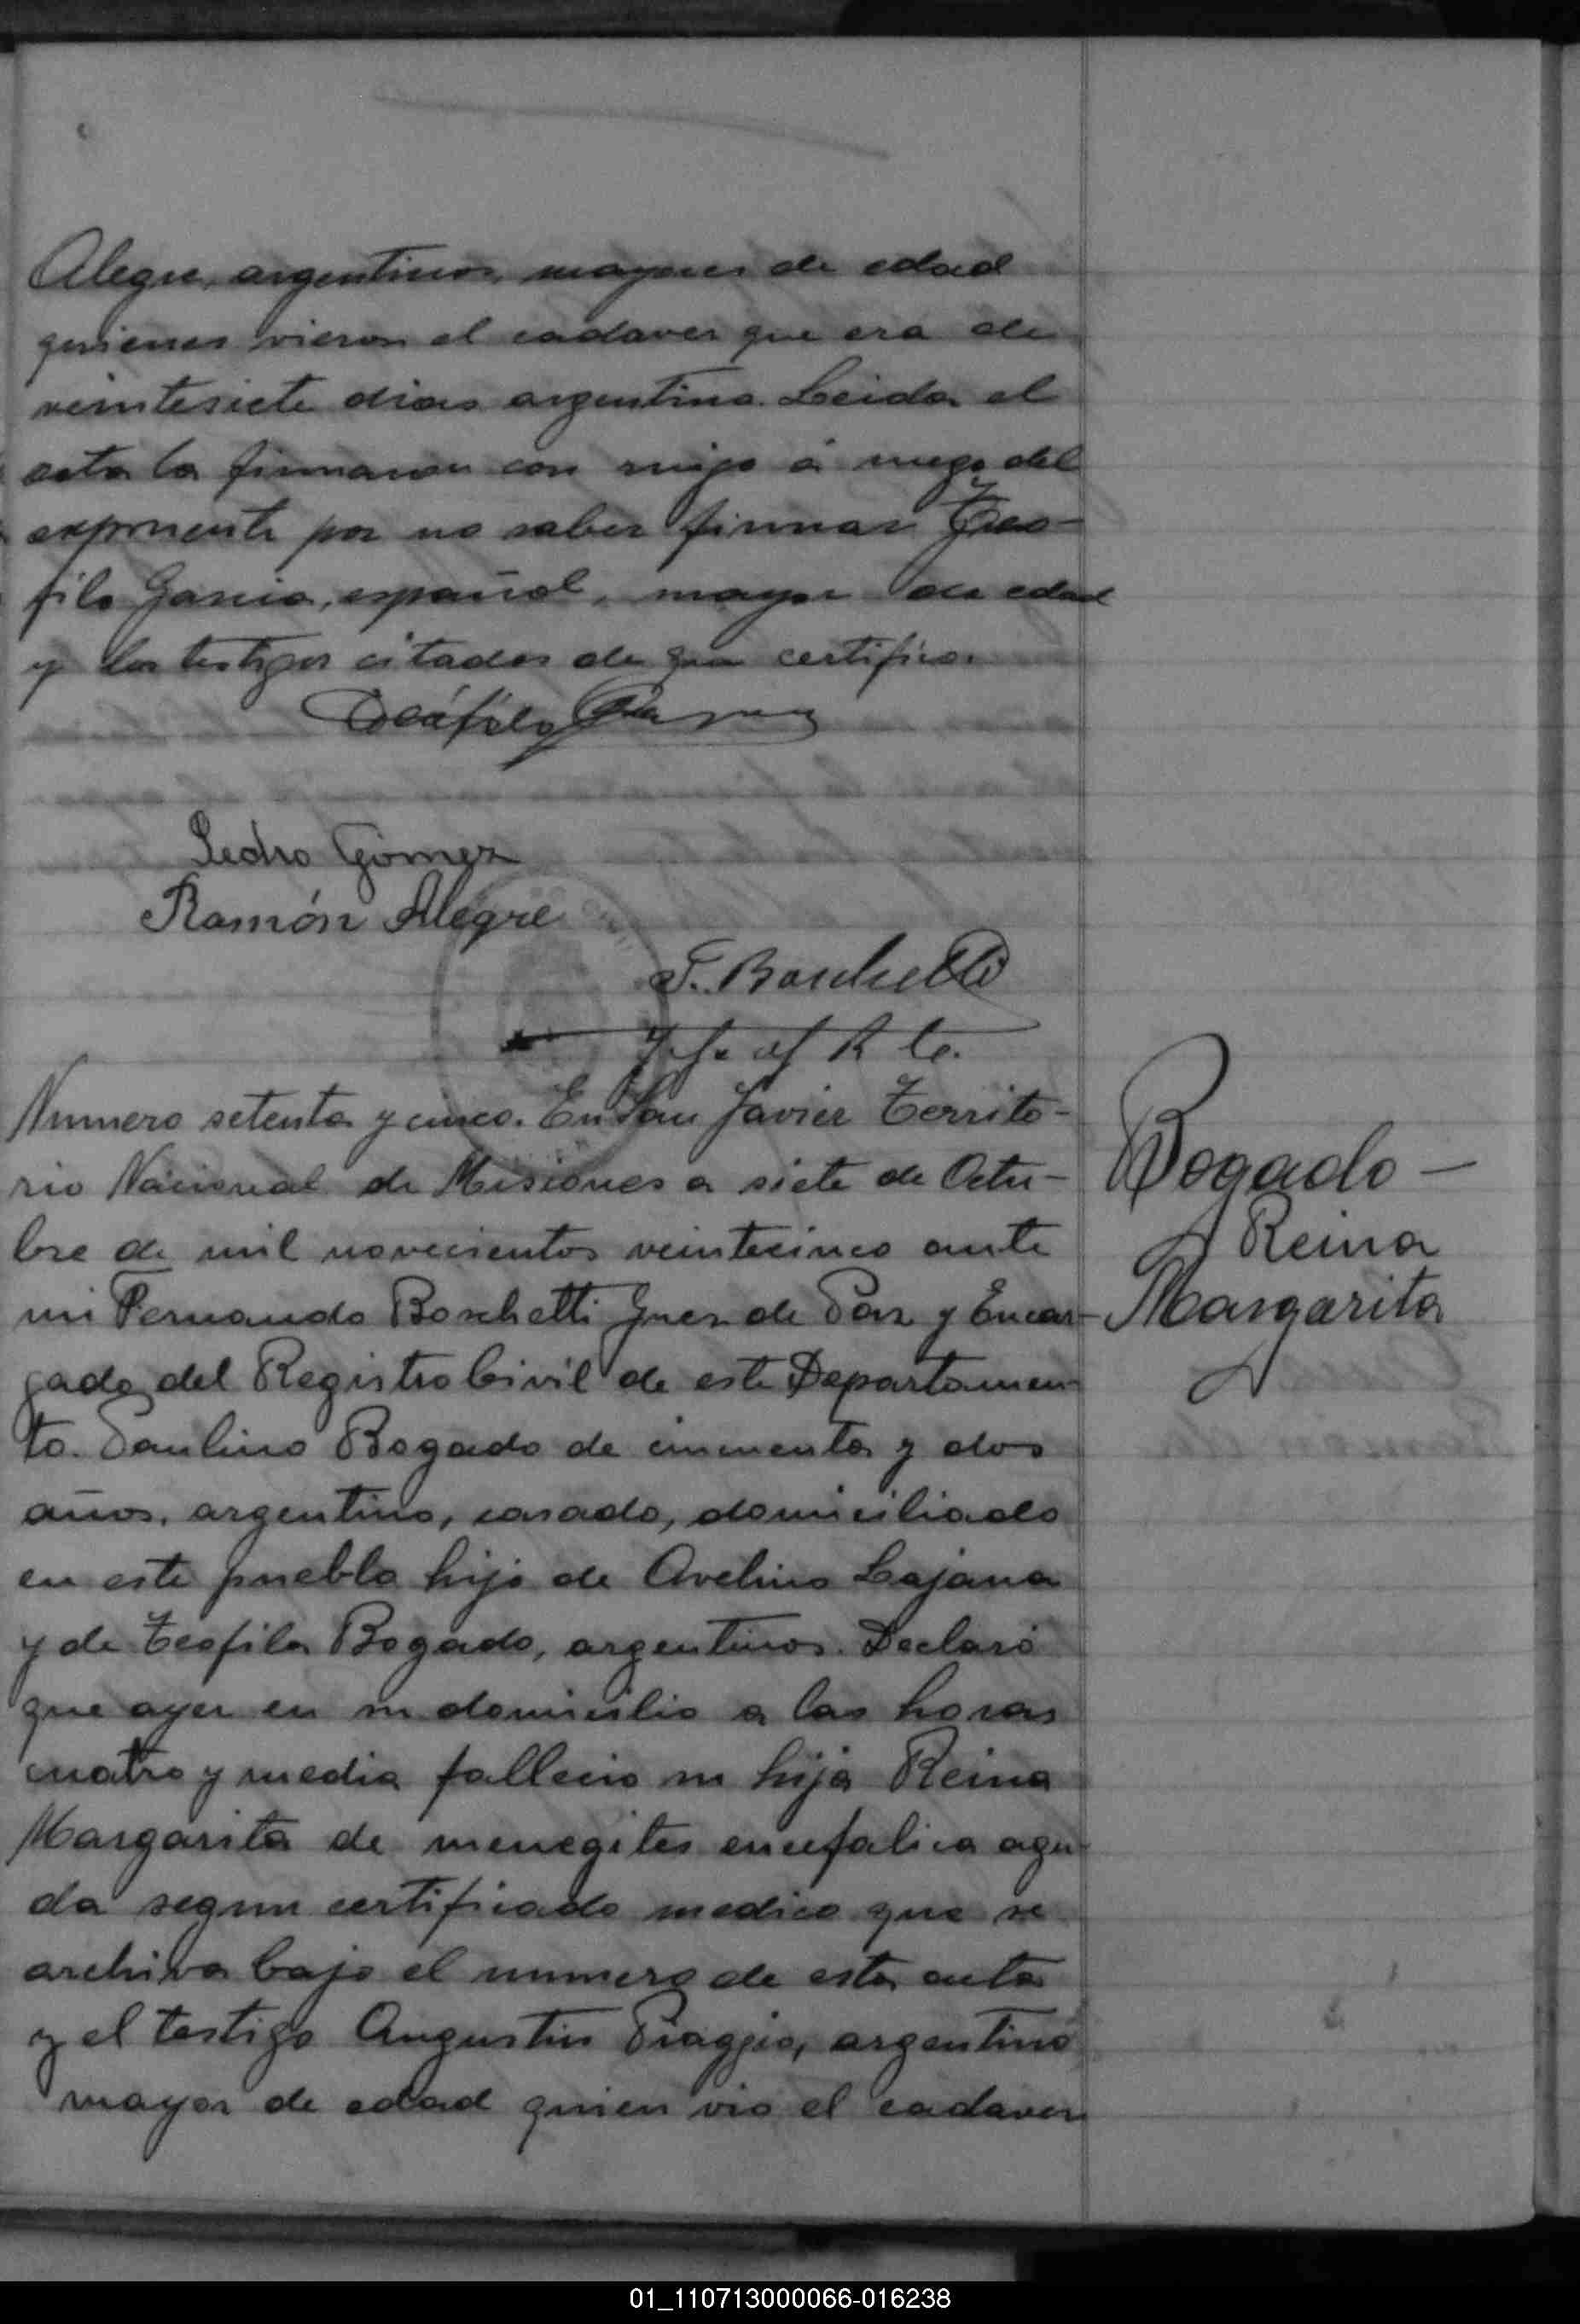 Alegre, argentinos, mayores de edad
quienes vieron el cadaver que era de
veintesiete dias argentina. Leida el
acta la firmaron con migo á ruego del
exponente por no saber firmar Teo-
filo Garcia, español, mayor de edad
y los testigos citados de que certifico.
Teófilo Garcia
Pedro Gómez
Ramón Alegre
F. Boschetti
Jefe del R. C.
Numero setenta y cinco. En San Javier Territo-
rio Nacional de Misiones a siete de Octu-
bre de mil novecientos veintecinco ante
mi Fernando Boschetti Juez de Paz y Encar-
gado del Registro Civil de este Departamen-
to. Paulino Bogado de cincuenta y dos
años, argentino, casado, domiciliado
en este pueblo hijo de Avelino Lajana
y de Teofila Bogado, argentinos. Declaró
que ayer en su domicilio a las horas
cuatro y media fallecio su hija Reina
Margarita de menegites encefalica agu-
da segun certificado medico que se
archiva bajo el numero de esta acta
y el testigo Augustin Piaggio, argentino
mayor de edad quien vio el cadaver
Bogado —
Reina
Margarita
01_110713000066-016238